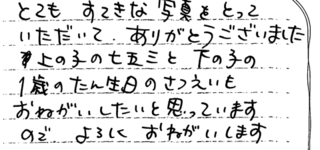 とても すてきな 写真をとって
いただいて、ありがとうございました
上の子の七五三と 下の子の
1歳のたん生日のさつえいも
おねがいしたいと思っています
ので よろしく おねがいします